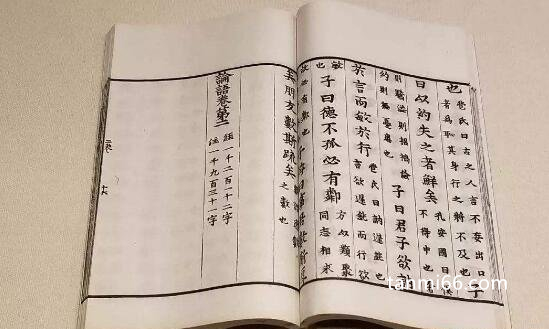 也
包氏曰古之人言不妄出口
者為恥其身行之將不及也
子
曰以約失之者鮮矣
孔安國曰俱
不得中也
則驕溢則招禍儉
約則無憂患也
子曰君子欲訥
於言而敏於行
包氏曰訥遲鈍也
言欲遲鈍而行欲
敏
也
子曰德不孤必有鄰
方以類聚
同志相求
故必有鄰
矣朋友數斯疏矣
之數也
論語卷第二
經一千二百一十二字
注一千九百三十一字
tanmi66.com